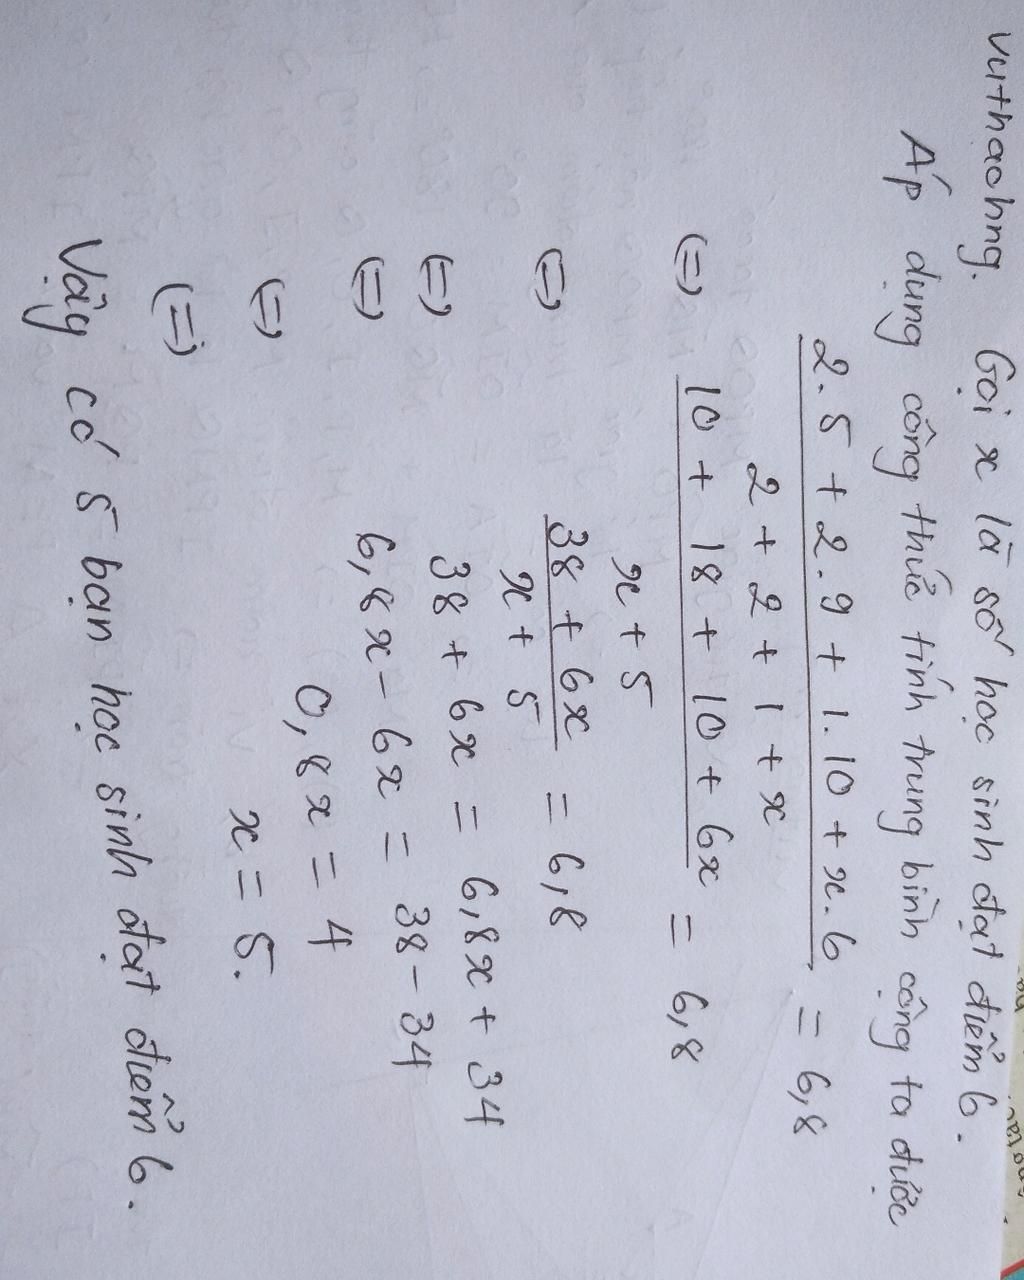 vuthaohng. Gọi x là số học sinh đạt điểm 6.
Áp dụng công thức tính trung bình cộng ta được
2.5 + 2.9 + 1.10 + x.6 = 6,8
2 + 2 + 1 + x
(=) 10 + 18 + 10 + 6x = 6,8
x + 5
(=) 38 + 6x = 6,8
x + 5
(=) 38 + 6x = 6,8x + 34
(=) 6,8x - 6x = 38 - 34
(=) 0,8x = 4
(=) x = 5.
Vậy có 5 bạn học sinh đạt điểm 6.